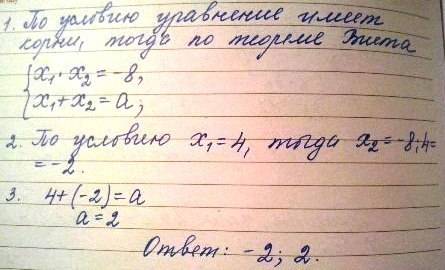 1. По условию уравнение имеет
корни, тогда по теореме Виета
x₁ · x₂ = -8,
x₁ + x₂ = a;
2. По условию x₁ = 4, тогда x₂ = -8:4=
= -2.
3. 4+(-2)=a
a=2
Ответ: -2; 2.